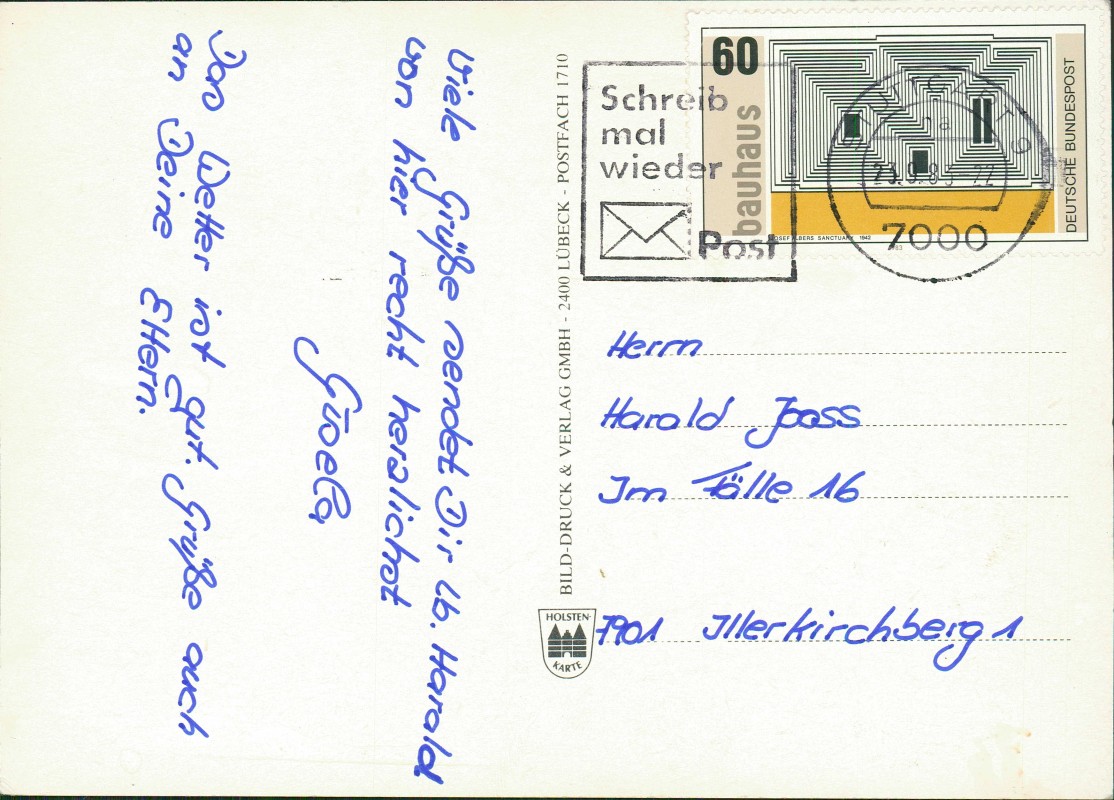 Viele Grüße sendet Dir lb. Harald
von hier recht herzlichst
Gisela
Das Wetter ist gut. Grüße auch
an Deine Eltern.
BILD-DRUCK & VERLAG GMBH - 2400 LÜBECK - POSTFACH 1710
HOLSTEN-
KARTE
Schreib
mal
wieder
Post
60
bauhaus
DEUTSCHE BUNDESPOST
JOSEF ALBERS SANCTUARY 1942
na
7000
Herrn
Harald Jooss
Im Fälle 16
7901 Illerkirchberg 1